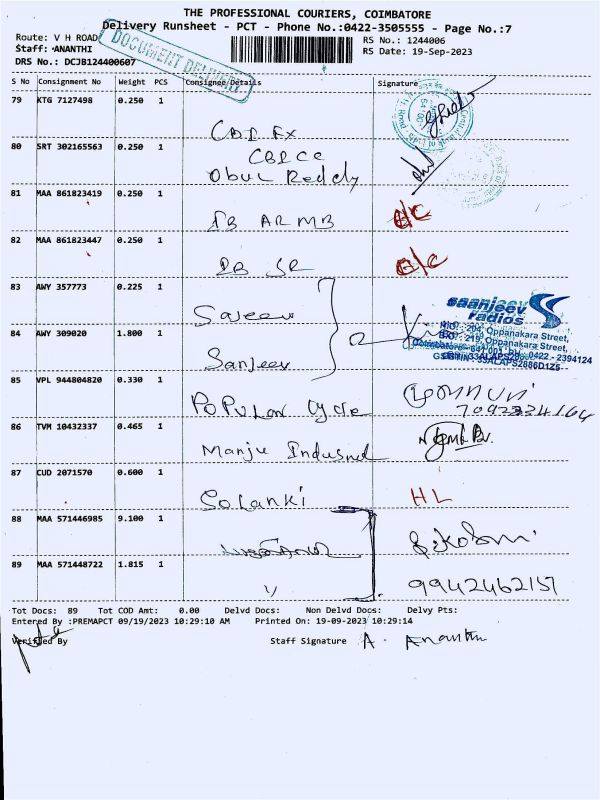 THE PROFESSIONAL COURIERS, COIMBATORE
Delivery Runsheet - PCT - Phone No.:0422-3505555 - Page No.:7
Route: V H ROAD
RS No.: 1244006
Staff: ANANTHI
RS Date: 19-Sep-2023
DRS No.: DCJB124400607
DOCUMENT DELIVERY
S No Consignment No Weight PCS Consignee/Details Signature
79 KTG 7127498 0.250 1
CBI FX
80 SRT 302165563 0.250 1
CBI CC
Obul Reddy
81 MAA 861823419 0.250 1
IB ARMB
82 MAA 861823447 0.250 1
83 AWY 357773 0.225 1
saanjeev
radios
204, Oppanakara Street,
219, Oppanakara Street,
0422 - 2394124
84 AWY 309020 1.800 1
Sanjeev
85 VPL 944804820 0.330 1
Popular Cycle
86 TVM 10432337 0.465 1
Manju Indusnd
87 CUD 2071570 0.600 1
Solanki
HL
88 MAA 571446985 9.100 1
89 MAA 571448722 1.815 1
9942462157
Tot Docs: 89 Tot COD Amt: 0.00 Delvd Docs: Non Delvd Docs: Delvy Pts:
Entered By :PREMAPCT 09/19/2023 10:29:10 AM Printed On: 19-09-2023 10:29:14
Verified By
Staff Signature A. Ananthi